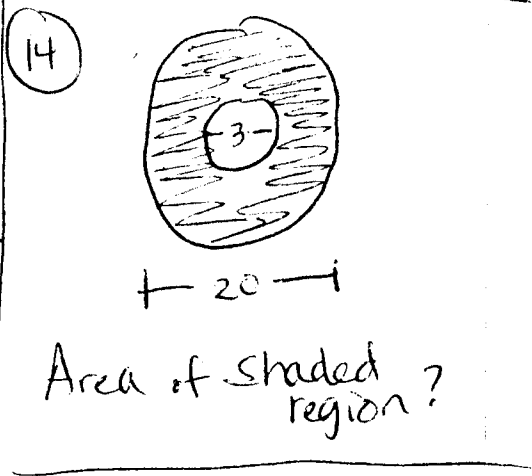 14
-3-
20
Area of shaded
region?